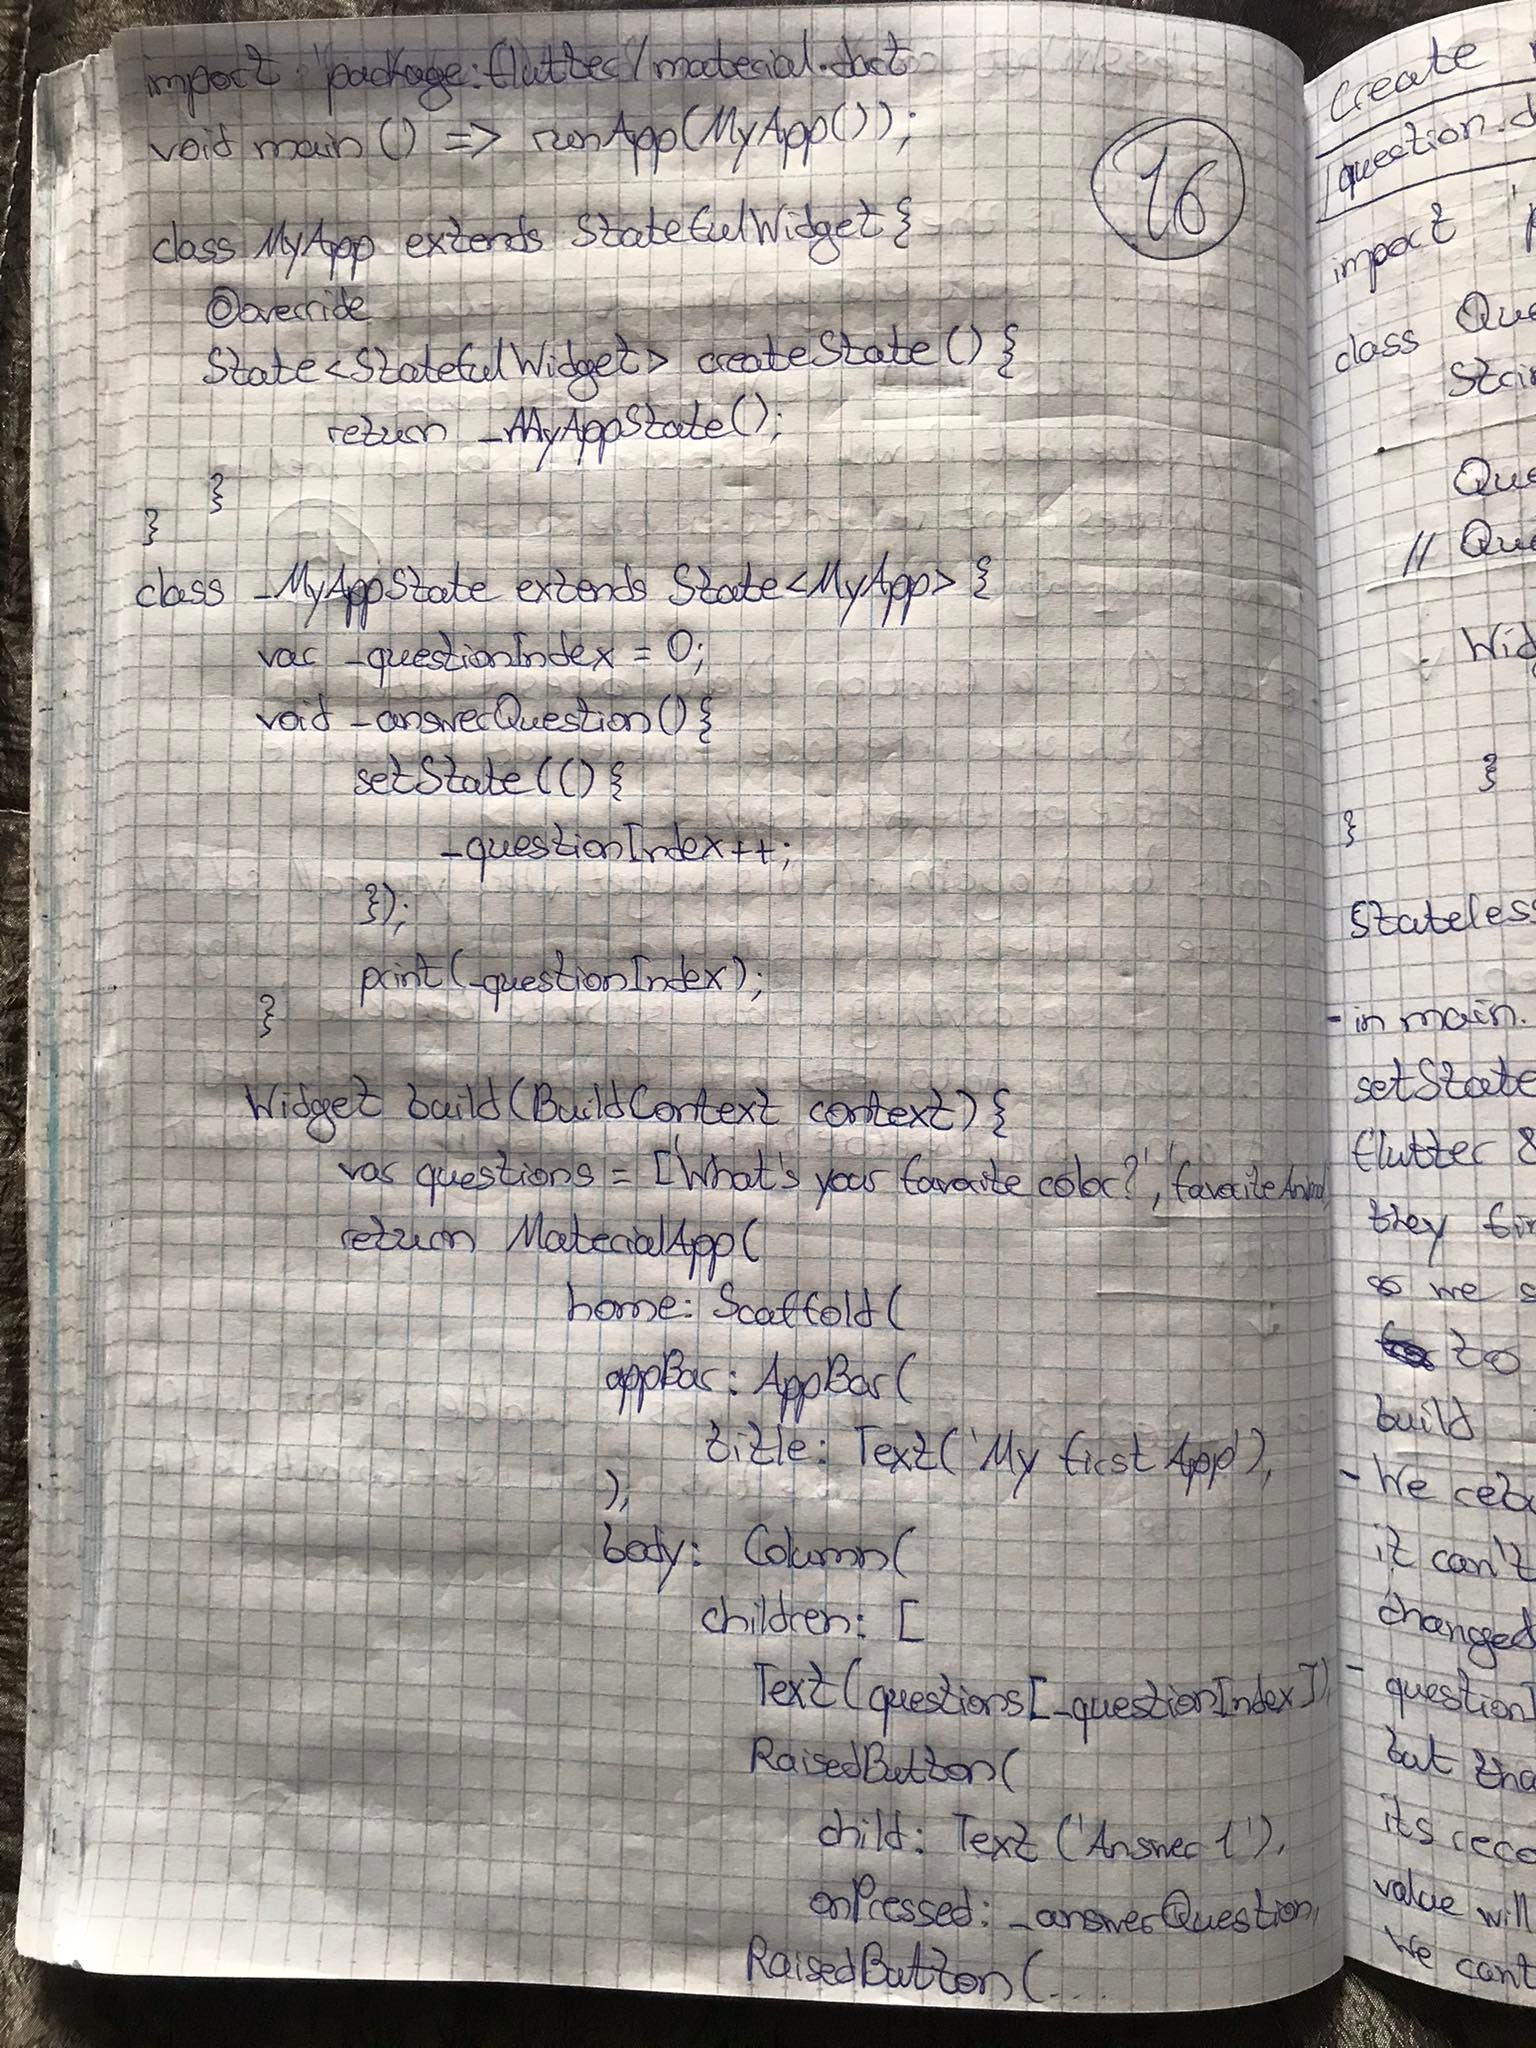 import 'package:flutter/material.dart
void main () => runApp(MyApp());
16
class MyApp extends StatefulWidget {
@override
State<StatefulWidget> createState() {
return _MyAppState();
}
}
class _MyAppState extends State<MyApp> {
var _questionIndex = 0;
void _answerQuestion() {
setState(() {
_questionIndex++;
});
print(_questionIndex);
}
Widget build(BuildContext context) {
var questions = ['What's your favorite color?', 'favoriteAnimal
return MaterialApp(
home: Scaffold(
appBar: AppBar(
title: Text('My first App'),
),
body: Column(
children: [
Text(questions[_questionIndex]),
RaisedButton(
child: Text ('Answer 1'),
onPressed: _answerQuestion,
RaisedButton(...
Create
question.d
import 'p
class Que
Strin
Que
// Que
Wid
}
}
Stateless
- in main.
setState
flutter &
they fir
so we s
to
build
- We rebu
it can't
changed
- questionI
but tha
its reco
value will
We cant